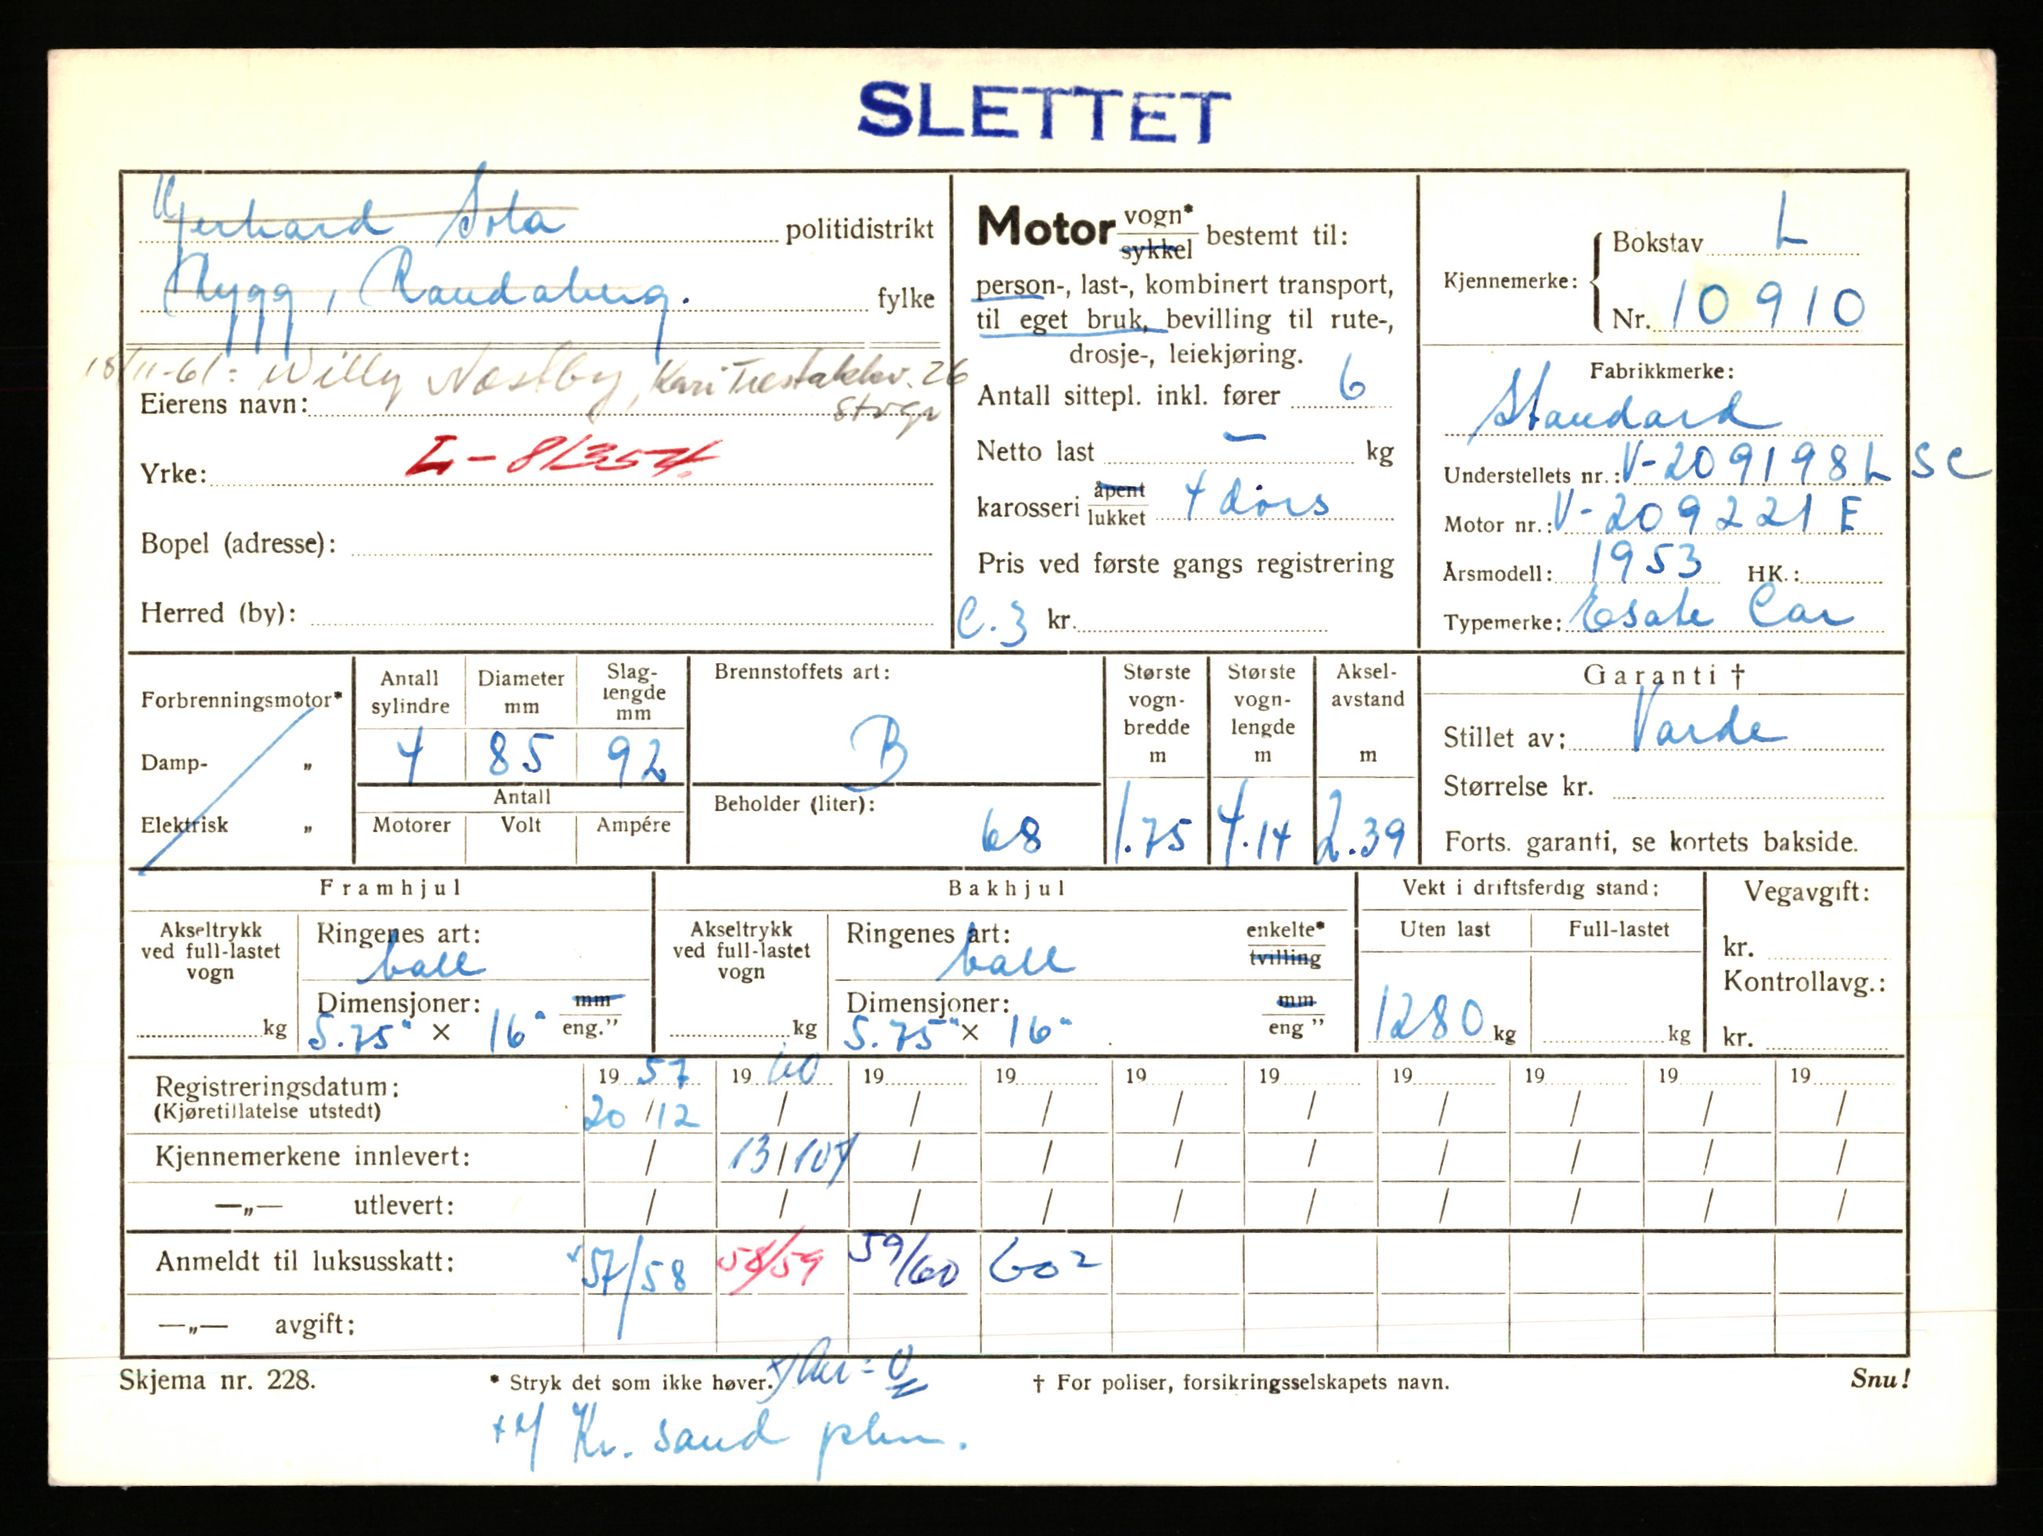 SLETTET
Gerhard Sola politidistrikt
Nygg, Randaberg. fylke
18/11-61: Willy Næstby, Kari Trestakkv. 26
Stvgr
Eierens navn:
L-81354
Yrke:
Bopel (adresse):
Herred (by):
Motor vogn* sykkel bestemt til:
person-, last-, kombinert transport,
til eget bruk, bevilling til rute-,
drosje-, leiekjøring.
Antall sittepl. inkl. fører 6
Netto last — kg
karosseri åpent lukket 4 dørs
Pris ved første gangs registrering
C.3 kr.
Kjennemerke: Bokstav L
Nr. 10910
Fabrikkmerke:
Standard
Understellets nr.: V-209198L SC
Motor nr.: V-209221 E
Årsmodell: 1953 HK.:
Typemerke: Esate Car
Forbrenningsmotor*
Damp- „
Elektrisk „
Antall sylindre Diameter mm Slag-lengde mm
4 85 92
Antall
Motorer Volt Ampére
Brennstoffets art:
B
Beholder (liter):
68
Største vogn-bredde m Største vogn-lengde m Aksel-avstand m
1.75 4.14 2.39
Garanti †
Stillet av: Varde
Størrelse kr.
Forts. garanti, se kortets bakside.
Framhjul
Akseltrykk ved full-lastet vogn
kg
Ringenes art:
ball
Dimensjoner: mm
5.75" × 16" eng."
Bakhjul
Akseltrykk ved full-lastet vogn
kg
Ringenes art: enkelte*
ball tvilling
Dimensjoner: mm
5.75" × 16" eng "
Vekt i driftsferdig stand:
Uten last Full-lastet
1280 kg kg
Vegavgift:
kr.
Kontrollavg.:
kr.
Registreringsdatum: 19 57 19 60 19 19 19 19 19 19 19 19
(Kjøretillatelse utstedt) 20/12 / / / / / / / / /
Kjennemerkene innlevert: / 13/10 / / / / / / / /
—„— utlevert: / / / / / / / / / /
Anmeldt til luksusskatt: 57/58 58/59 59/60 60²
—„— avgift:
Skjema nr. 228. * Stryk det som ikke høver. † For poliser, forsikringsselskapets navn. Snu!
Kr. sand